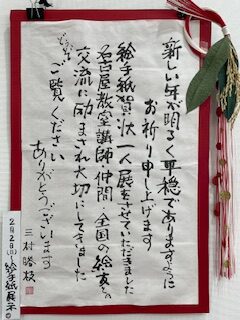 新しい年が明るく平穏でありますように
お祈り申し上げます
絵手紙賀状一人展をさせていただきました
名古屋教室講師・仲間・全国の絵友との
交流に励まされ大切にしてきました
どうぞご覧ください
ありがとうございます
三村
2月2日(日)〜絵手紙展示